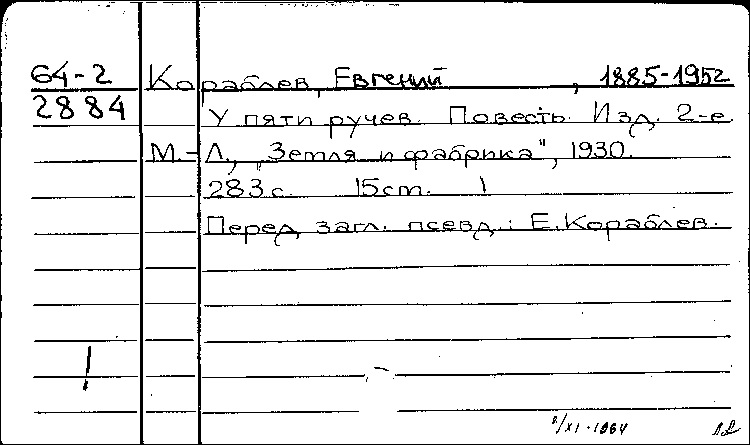 64-2 Кораблев, Евгений, 1885-1952
2884 У пяти ручев. Повесть. Изд. 2-е
М.-Л., „Земля и фабрика", 1930.
283 с. 15 cm. 1
Перед загл. псевд.: Е. Кораблев.
/XI-1964